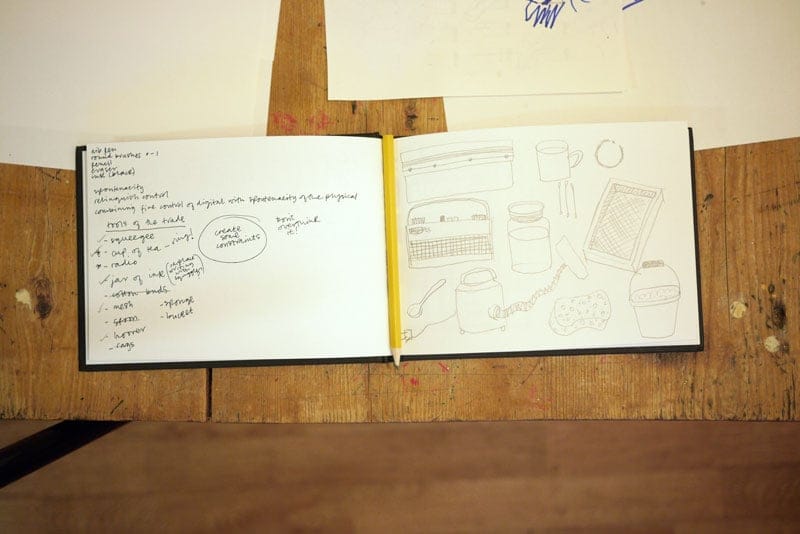 nib pen
round brushes 0-1
pencil
eraser
ink (black)
spontenacity
relinquish control
combining fine control of digital with spontenacity of the physical
tools of the trade
- squeegee
- cup of tea - ring!
- radio
- jar of ink
- cotton buds
- mesh
- spoon
- hoover
- rags
- sponge
- bucket
create
some
constraints
Don't
overthink
it!